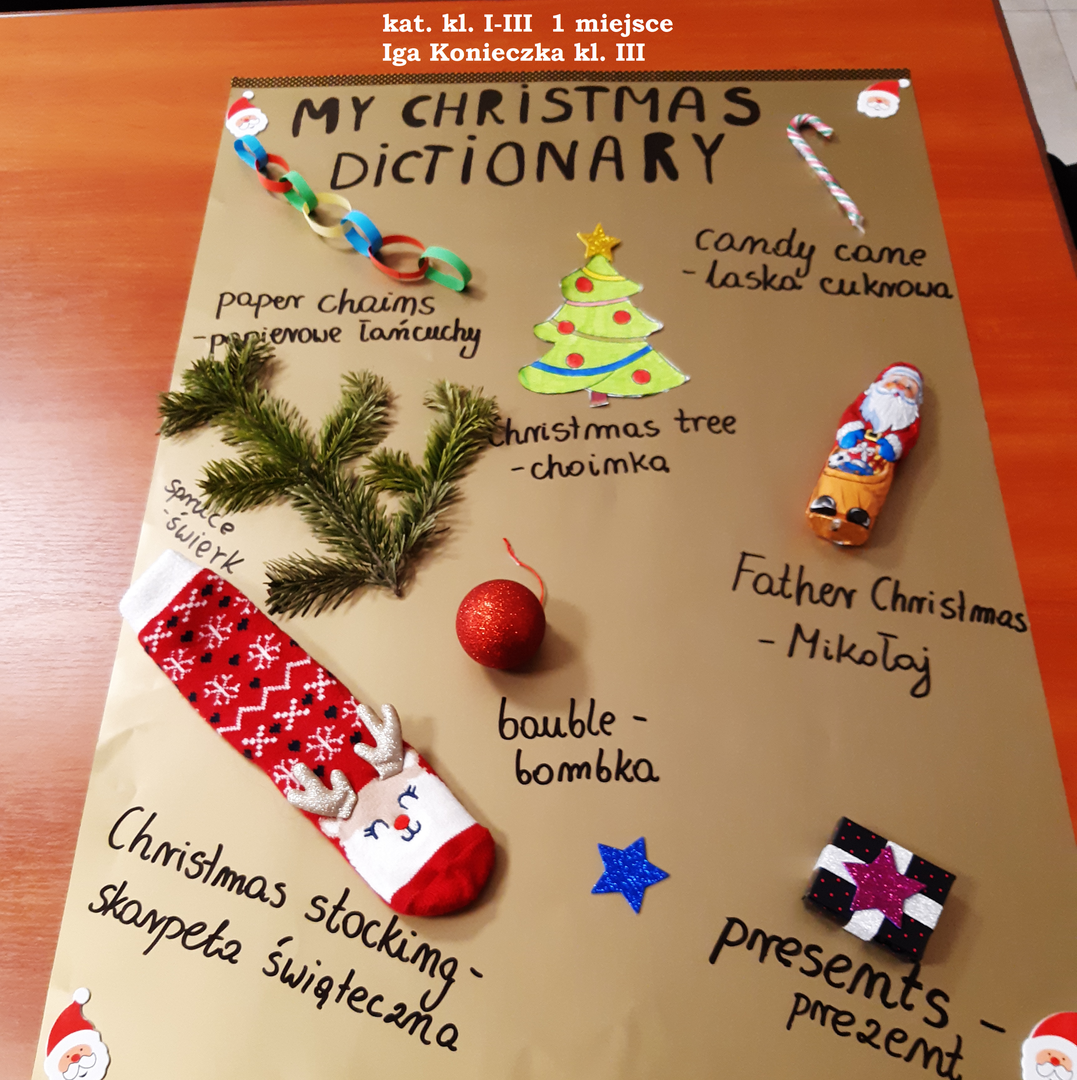 kat. kl. I-III 1 miejsce
Iga Konieczka kl. III
MY CHRISTMAS
DICTIONARY
candy cane
- laska cukrowa
paper chains
- papierowe łańcuchy
Christmas tree
- choinka
spruce
- świerk
Father Christmas
- Mikołaj
bauble -
bombka
Christmas stocking -
skarpeta świąteczna
presents -
prezent